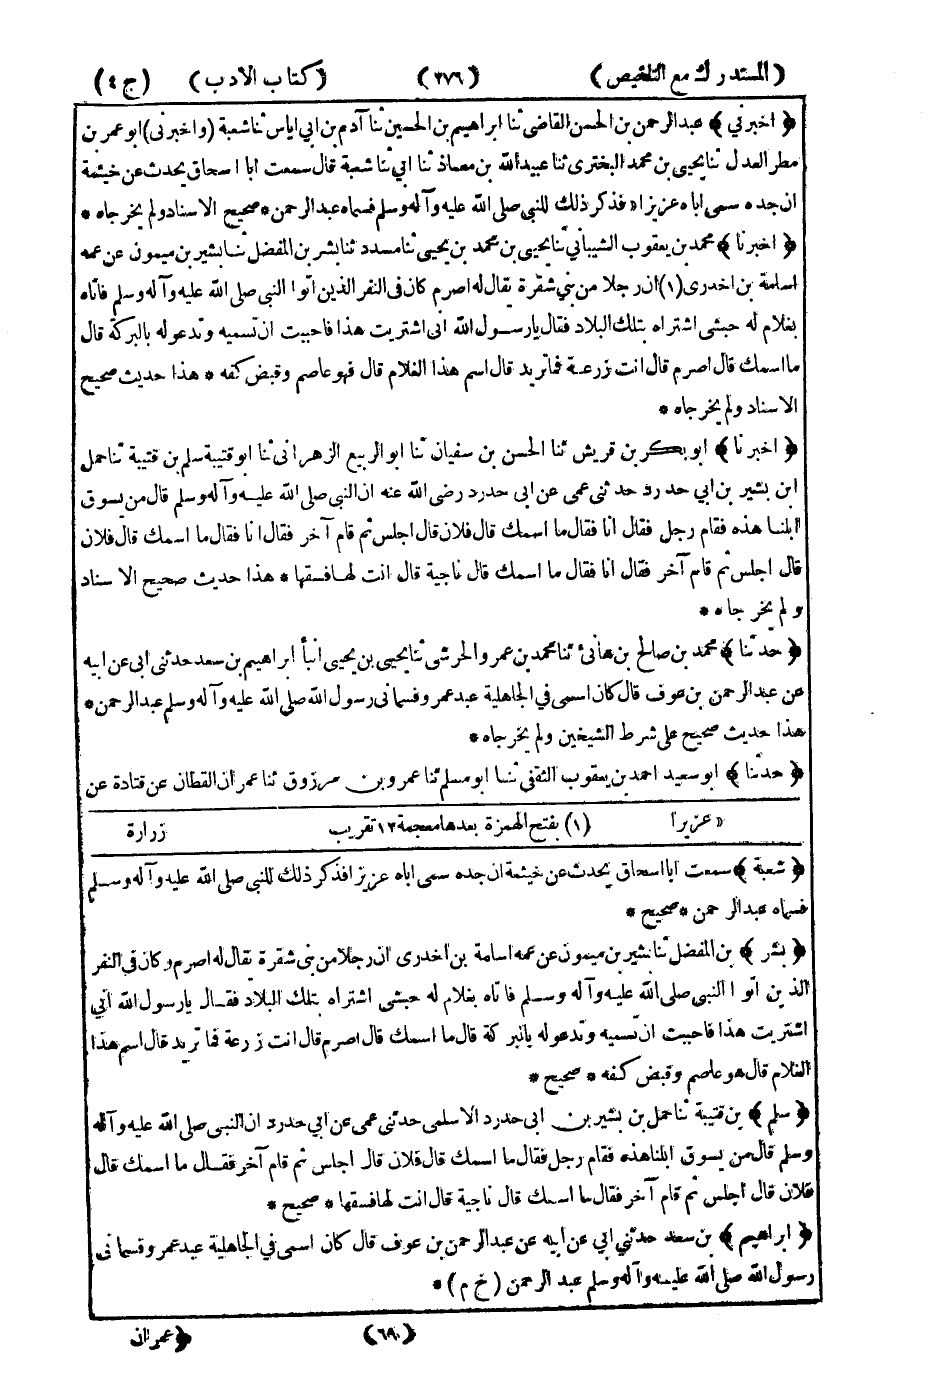 (المستدرك مع التلخيص) (٢٧٦) (كتاب الادب) (ج ٤)
﴿ اخبرني ﴾ عبدالرحمن بن الحسن القاضى ثنا ابراهيم بن الحسين ثنا آدم بن ابى اياس ثنا شعبة (واخبرنى) ابو عمر بن
مطر العدل ثنا يحيى بن محمد البخترى ثنا عبيدالله بن معاذ ثنا ابي ثنا شعبة قال سمعت ابا اسحاق يحدث عن خيثمة
ان جده سمى اباه عزيزا« فذكر ذلك للنبي صلى الله عليه وآله وسلم فسماه عبدالرحمن * صحيح الاسناد ولم يخرجاه *
﴿ اخبرنا ﴾ محمد بن يعقوب الشيباني ثنا يحيى بن محمد بن يحيى ثنا مسدد ثنا بشر بن المفضل ثنا بشير بن ميمون عن عمه
اسامة بن اخدرى (١) ان رجلا من بني شقرة يقال له اصرم كان فى النفر الذين اتوا النبي صلى الله عليه وآله وسلم فاتاه
بغلام له حبشى اشتراه بتلك البلاد فقال يارسول الله انى اشتريت هذا فاحببت ان تسميه وتدعو له بالبركة قال
ما اسمك قال اصرم قال انت زرعة فما تريد قال اسم هذا الغلام قال فهو عاصم وقبض كفه * هذا حديث صحيح
الاسناد ولم يخرجاه *
﴿ اخبرنا ﴾ ابو بكر بن قريش ثنا الحسن بن سفيان ثنا ابو الربيع الزهرانى ثنا ابو قتيبة سلم بن قتيبة ثنا حمل
ابن بشير بن ابي حدرد حدثنى عمى عن ابى حدرد رضى الله عنه ان النبى صلى الله عليه وآله وسلم قال من يسوق
ابلنا هذه فقام رجل فقال انا فقال ما اسمك قال فلان قال اجلس ثم قام آخر فقال انا فقال ما اسمك قال فلان
قال اجلس ثم قام آخر فقال انا فقال ما اسمك قال ناجية قال انت لها فسقها * هذا حديث صحيح الاسناد
ولم يخرجاه *
﴿ حدثنا ﴾ محمد بن صالح بن هانئ ثنا محمد بن عمرو الحرشى ثنا يحيى بن يحيى انبأ ابراهيم بن سعد حدثنى ابى عن ابيه
عن عبدالرحمن بن عوف قال كان اسمى في الجاهلية عبد عمرو فسمانى رسول الله صلى الله عليه وآله وسلم عبدالرحمن *
هذا حديث صحيح على شرط الشيخين ولم يخرجاه *
﴿ حدثنا ﴾ ابو سعيد احمد بن يعقوب الثقفى ثنا ابو مسلم ثنا عمرو بن مرزوق ثنا عمران القطان عن قتادة عن
« عزيرا (١) بفتح الهمزة بعدها معجمة ١٢ تقريب زرارة
﴿ شعبة ﴾ سمعت ابا اسحاق يحدث عن خيثمة ان جده سمى اباه عزيزا فذكر ذلك للنبي صلى الله عليه وآله وسلم
فسماه عبدالرحمن * صحيح *
﴿ بشر ﴾ بن المفضل ثنا بشير بن ميمون عن عمه اسامة بن اخدرى ان رجلا من بنى شقرة يقال له اصرم وكان في النفر
الذين اتوا النبى صلى الله عليه وآله وسلم فاتاه بغلام له حبشى اشتراه بتلك البلاد فقال يارسول الله انى
اشتريت هذا فاحببت ان تسميه وتدعو له بالبركة قال ما اسمك قال اصرم قال انت زرعة فما تريد قال اسم هذا
الغلام قال هو عاصم وقبض كفه * صحيح *
﴿ سلم ﴾ بن قتيبة ثنا حمل بن بشير بن ابى حدرد الاسلمى حدثنى عمى عن ابي حدرد ان النبى صلى الله عليه وآله
وسلم قال من يسوق ابلنا هذه فقام رجل فقال ما اسمك قال فلان قال اجلس ثم قام آخر فقال ما اسمك قال
فلان قال اجلس ثم قام آخر فقال ما اسمك قال ناجية قال انت لها فسقها * صحيح *
﴿ ابراهيم ﴾ بن سعد حدثني ابي عن ابيه عن عبدالرحمن بن عوف قال كان اسمى في الجاهلية عبد عمرو فسمانى
رسول الله صلى الله عليه وآله وسلم عبد الرحمن (خ م) *
(٦٩٠) ﴿ عمران